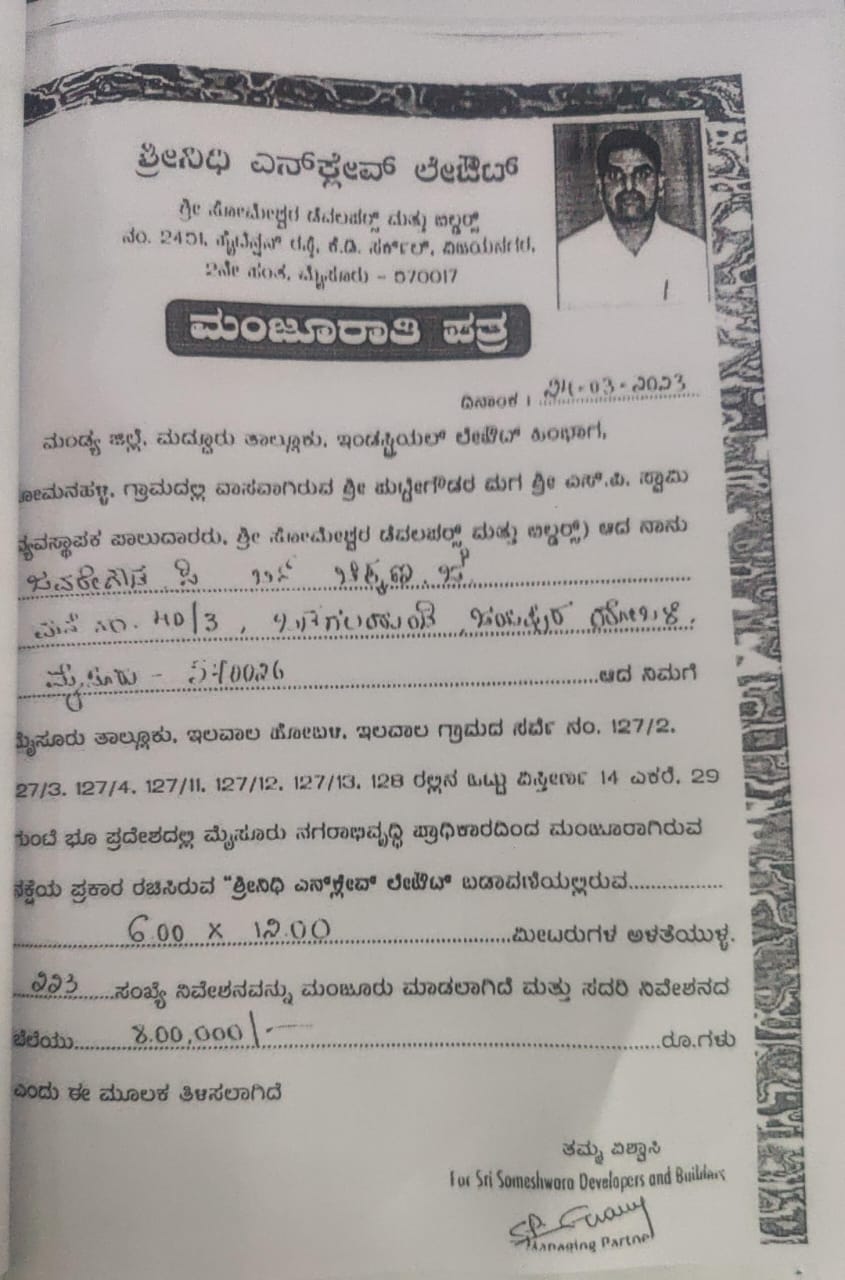 ಶ್ರೀನಿಧಿ ಎನ್‌ಕ್ಲೇವ್ ಲೇಔಟ್
ಶ್ರೀ ಸೋಮೇಶ್ವರ ಡೆವಲಪರ್ಸ್ ಮತ್ತು ಬಿಲ್ಡರ್ಸ್
ನಂ. 2451, ಹೈಟೆನ್ಷನ್ ರಸ್ತೆ, ಕೆ.ಡಿ. ಸರ್ಕಲ್, ವಿಜಯನಗರ,
2ನೇ ಹಂತ, ಮೈಸೂರು - 570017
ಮಂಜೂರಾತಿ ಪತ್ರ
ದಿನಾಂಕ : 24-03-2023
ಮಂಡ್ಯ ಜಿಲ್ಲೆ, ಮದ್ದೂರು ತಾಲ್ಲೂಕು, ಇಂಡಸ್ಟ್ರಿಯಲ್ ಲೇಔಟ್ ಹಿಂಭಾಗ,
ಗ್ರಾಮದಲ್ಲಿ ವಾಸವಾಗಿರುವ ಶ್ರೀ ಪುಟ್ಟೇಗೌಡರ ಮಗ ಶ್ರೀ ಎಸ್.ಪಿ. ಸ್ವಾಮಿ
ವ್ಯವಸ್ಥಾಪಕ ಪಾಲುದಾರರು, ಶ್ರೀ ಸೋಮೇಶ್ವರ ಡೆವಲಪರ್ಸ್ ಮತ್ತು ಬಿಲ್ಡರ್ಸ್) ಆದ ನಾನು
ಜವರೇಗೌಡ ಸಿ ಬಿನ್
ಮನೆ ನಂ. 40/3,
ಮೈಸೂರು - 570026 ಆದ ನಿಮಗೆ
ಮೈಸೂರು ತಾಲ್ಲೂಕು, ಇಲವಾಲ ಹೋಬಳಿ, ಇಲವಾಲ ಗ್ರಾಮದ ಸರ್ವೆ ನಂ. 127/2,
27/3, 127/4, 127/11, 127/12, 127/13, 128 ರಲ್ಲಿನ ಒಟ್ಟು ವಿಸ್ತೀರ್ಣ 14 ಎಕರೆ, 29
ಗುಂಟೆ ಭೂ ಪ್ರದೇಶದಲ್ಲಿ ಮೈಸೂರು ನಗರಾಭಿವೃದ್ಧಿ ಪ್ರಾಧಿಕಾರದಿಂದ ಮಂಜೂರಾಗಿರುವ
ನಕ್ಷೆಯ ಪ್ರಕಾರ ರಚಿಸಿರುವ "ಶ್ರೀನಿಧಿ ಎನ್‌ಕ್ಲೇವ್ ಲೇಔಟ್ ಬಡಾವಣೆಯಲ್ಲಿರುವ
6.00 X 12.00 ಮೀಟರುಗಳ ಅಳತೆಯುಳ್ಳ.
223 ಸಂಖ್ಯೆ ನಿವೇಶನವನ್ನು ಮಂಜೂರು ಮಾಡಲಾಗಿದೆ ಮತ್ತು ಸದರಿ ನಿವೇಶನದ
ಬೆಲೆಯು 8.00,000/- ರೂ.ಗಳು
ಎಂದು ಈ ಮೂಲಕ ತಿಳಿಸಲಾಗಿದೆ
ತಮ್ಮ ವಿಶ್ವಾಸಿ
For Sri Someshwara Developers and Builders
Managing Partner